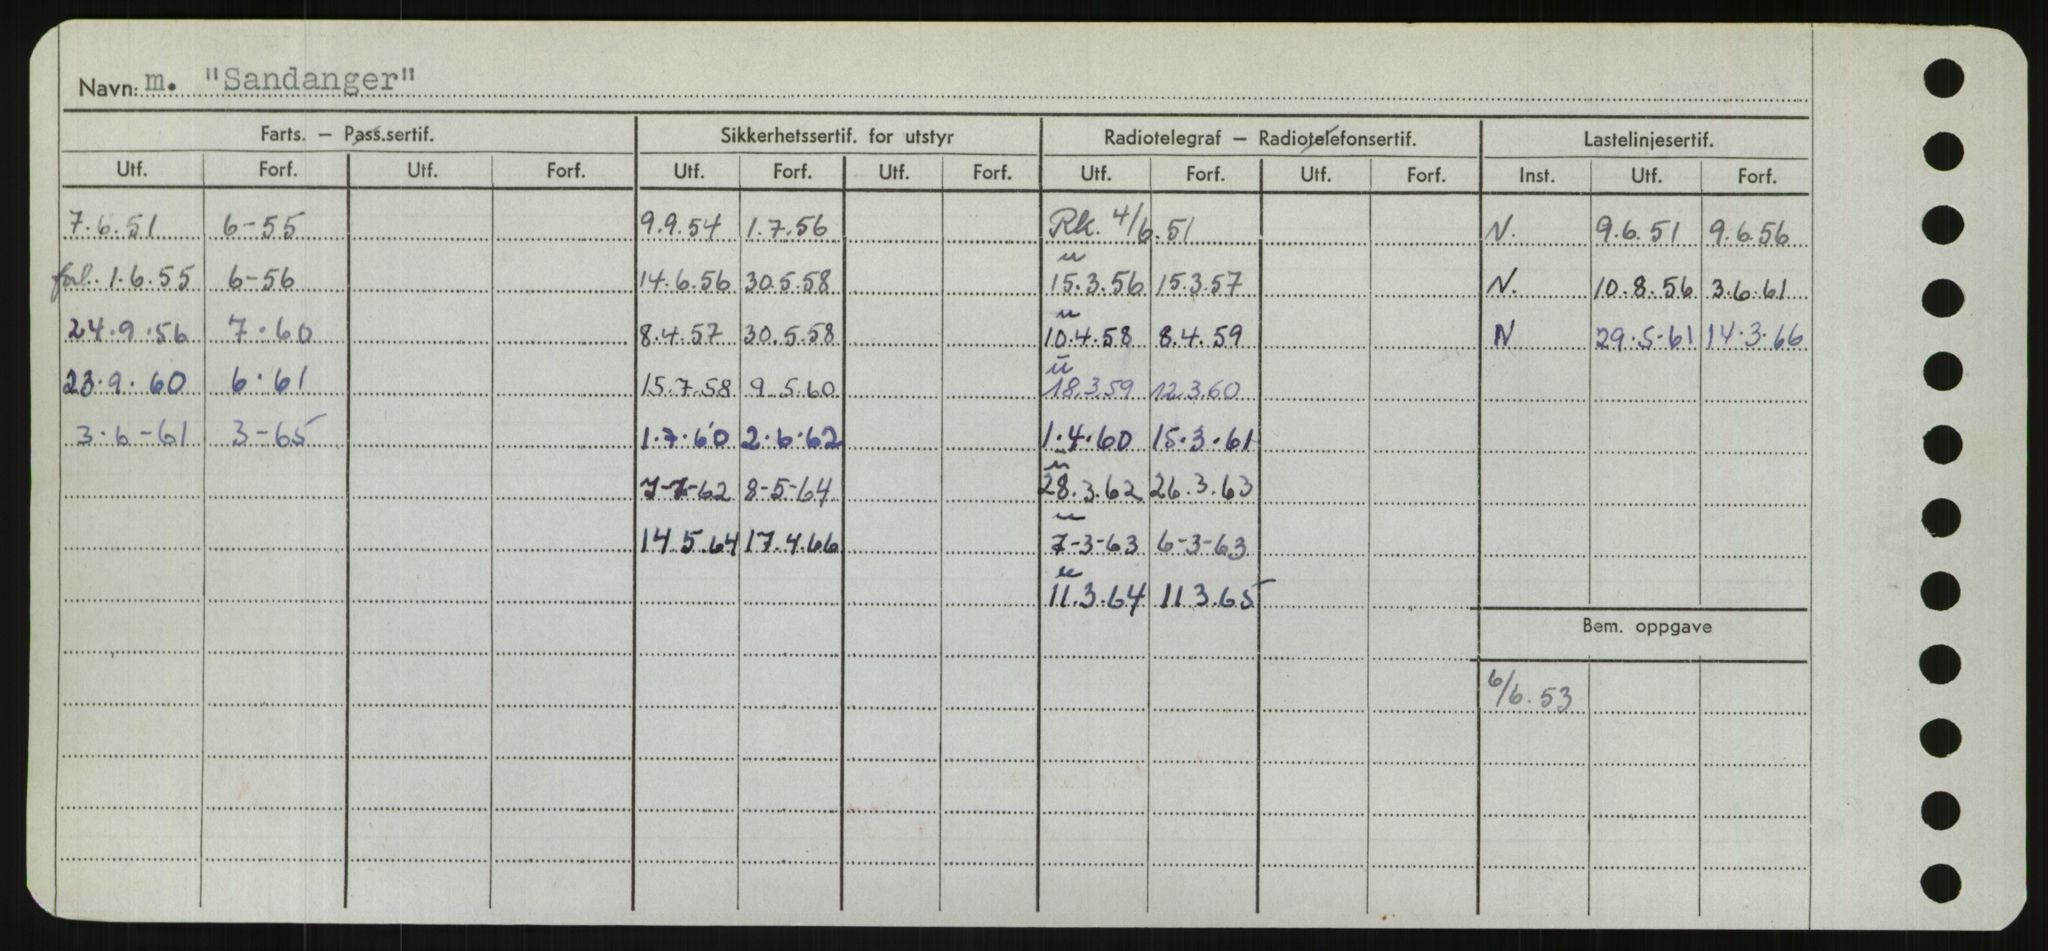 Navn: m. "Sandanger"
Farts. – Pass.sertif. Sikkerhetssertif. for utstyr Radiotelegraf – Radiotelefonsertif. Lastelinjesertif.
Utf. Forf. Utf. Forf. Utf. Forf. Utf. Forf. Utf. Forf. Utf. Forf. Inst. Utf. Forf.
7.6.51 6-55 9.9.54 1.7.56 Rk. 4/6.51 N. 9.6.51 9.6.56
u
forl. 1.6.55 6-56 14.6.56 30.5.58 15.3.56 15.3.57 N. 10.8.56 3.6.61
u
24.9.56 7.60 8.4.57 30.5.58 10.4.58 8.4.59 N 29.5-61 14.3.66
u
23.9.60 6.61 15.7.58 9.5.60 18.3.59 12.3.60
3.6-61 3-65 1.7.60 2.6.62 1.4.60 15.3.61
u
7-7-62 8-5-64 28.3.62 26.3.63
u
14.5.64 17.4.66 7-3-63 6-3-63
u
11.3.64 11.3.65
Bem. oppgave
6/6.53